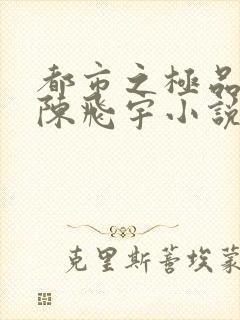 都市之極品
陳飛宇小說
克里斯蒂埃蒙